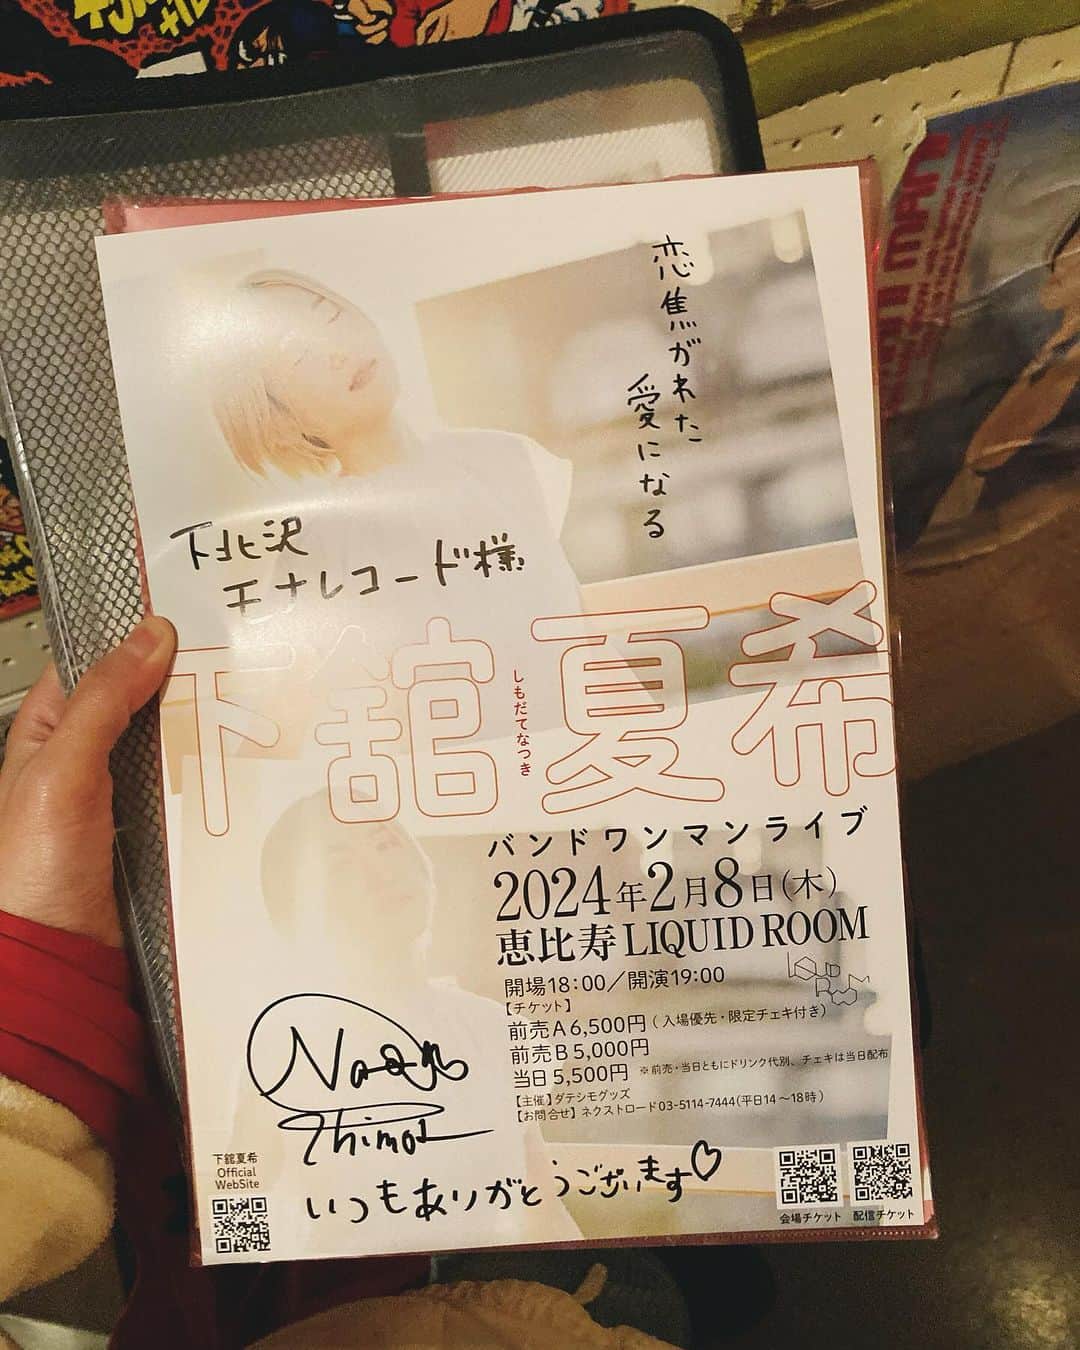 恋焦がれた
愛になる
下北沢
モナレコード様
下舘夏希
しもだてなつき
バンドワンマンライブ
2024年2月8日(木)
恵比寿 LIQUID ROOM
LIQUID ROOM
開場18:00/開演19:00
【チケット】
前売A 6,500円(入場優先・限定チェキ付き)
前売B 5,000円
当日 5,500円 ※前売・当日ともにドリンク代別、チェキは当日配布
【主催】ダテシモグッズ
【お問合せ】ネクストロード03-5114-7444(平日14〜18時)
いつもありがとうございます♡
下舘夏希
Official
WebSite
会場チケット 配信チケット